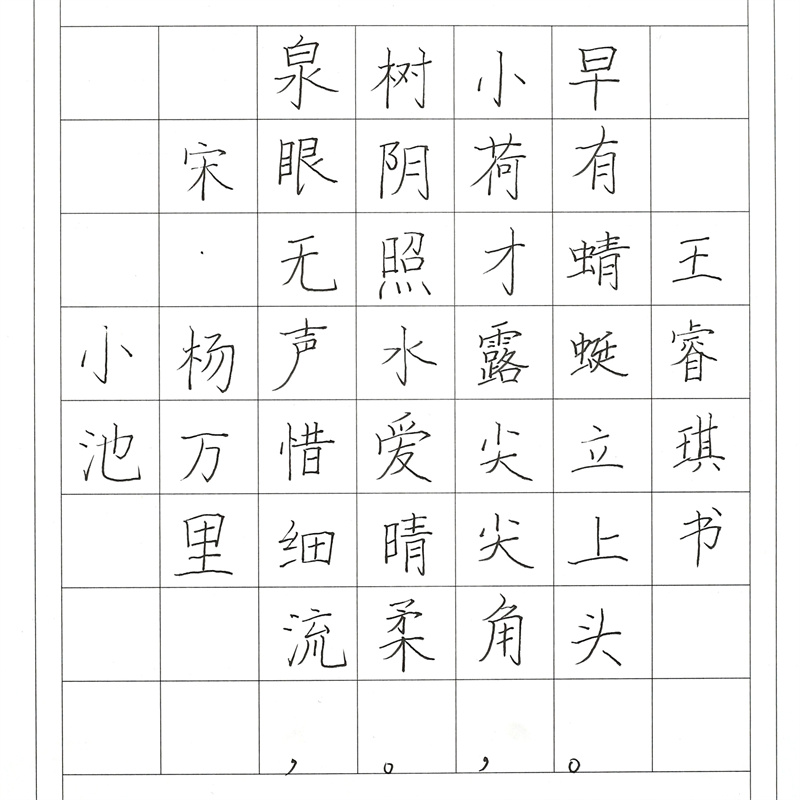 小池
宋·杨万里
泉眼无声惜细流，
树阴照水爱晴柔。
小荷才露尖尖角，
早有蜻蜓立上头。
王睿琪书